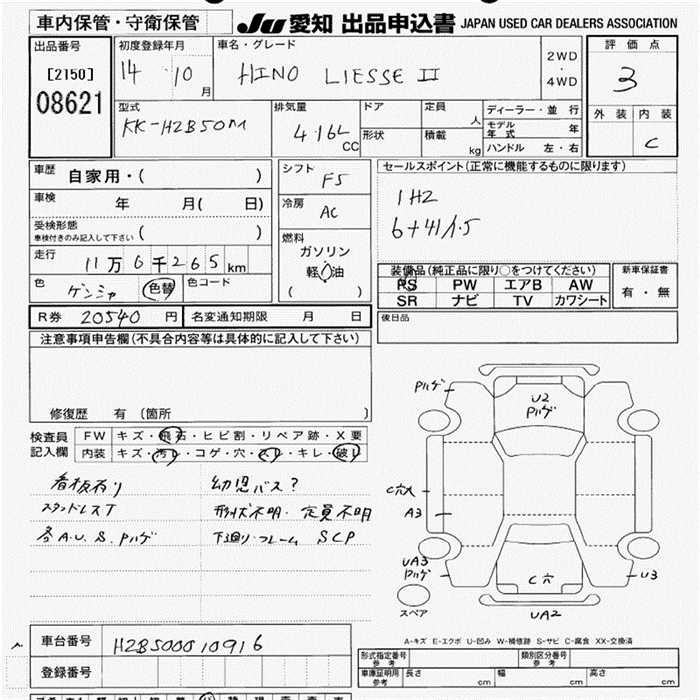 車内保管・守衛保管 JU 愛知 出品申込書 JAPAN USED CAR DEALERS ASSOCIATION
出品番号 初度登録年月 車名・グレード 2WD・4WD 評価点
[2150] 14 10月 HINO LIESSE II 3
08621 型式 排気量 ドア 定員 人 ディーラー・並行 外装 内装
KK-HZB50M 4.16L CC 形状 積載 kg モデル年式 年 C
ハンドル 左・右
車歴 自家用・( ) シフト F5 セールスポイント(正常に機能するものに限ります)
車検 年 月( 日) 冷房 AC 1HZ
受検形態 6+41/1.5
車検付きのみ記入して下さい( ) 燃料
走行 11万6千265km ガソリン
軽油
( )
色 ゲンシャ 色替 色コード 装備品(純正品に限り○をつけてください) 新車保証書
PS PW エアB AW 有・無
SR ナビ TV カワシート
R券 20540円 名変通知期限 月 日 後日品
注意事項申告欄(不具合内容等は具体的に記入して下さい)
修復歴 有(箇所 )
検査員 FW キズ・飛石・ヒビ割・リペア跡・X要
記入欄 内装 キズ・汚レ・コゲ・穴・スレ・キレ・破レ
看板有り 幼児バス?
スタッドレスT 形状不明・定員不明
各A.U.S.Pハゲ 下回り・フレーム SCP
Pハゲ
U2
Pハゲ
C穴大
A3
UA3
Pハゲ
C穴
U3
スペア
UA2
A-キズ E-エクボ U-凹み W-補修跡 S-サビ C-腐食 XX-交換済
車台番号 HZB500010916
登録番号
形式指定番号 参考 類別区分番号 参考
車庫証明用 参考 長さ cm 幅 cm 高さ cm